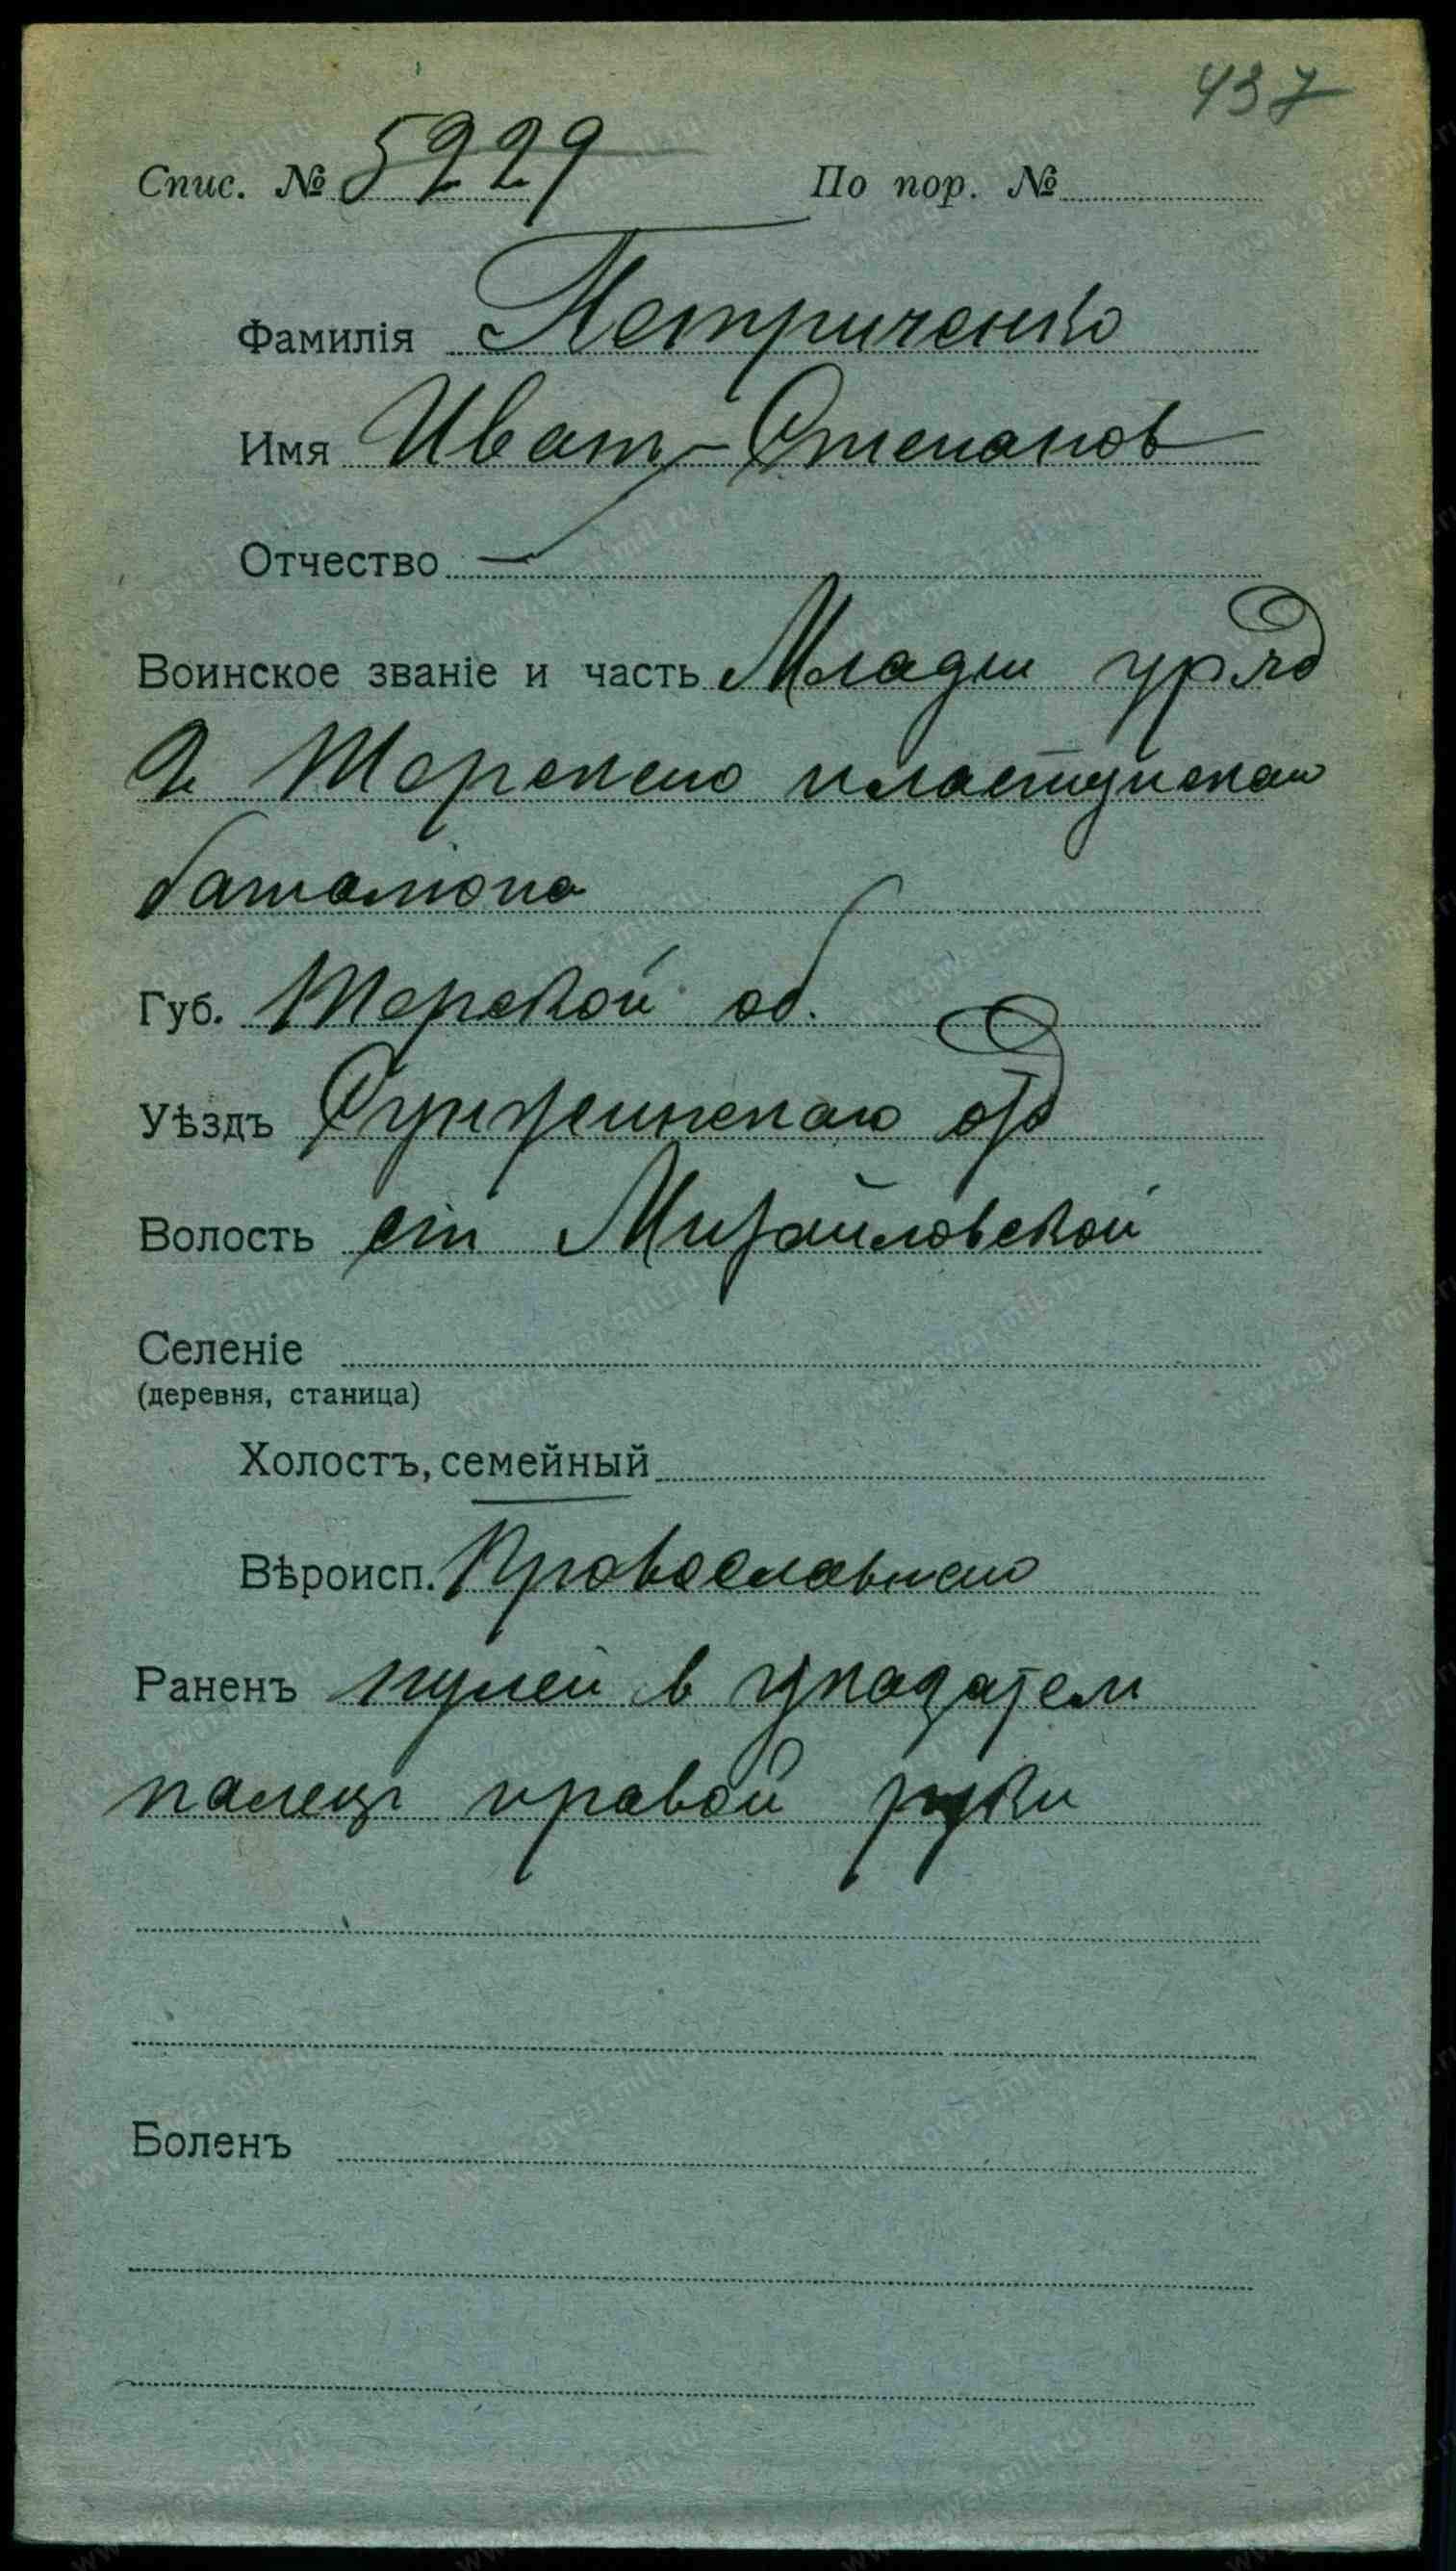 437
Спис. № 5229 По пор. №
Фамилія Петриченко
Имя Иванъ Степанов
Отчество
Воинское званіе и часть Младш уряд
2 Терскаго пластунскаго
баталіона
Губ. Терской об.
Уѣздъ Сунженскаго отд
Волость ст Михайловской
Селеніе
(деревня, станица)
Холостъ, семейный
Вѣроисп. Православнаго
Раненъ пулей в указател
палецъ правой руки
Боленъ